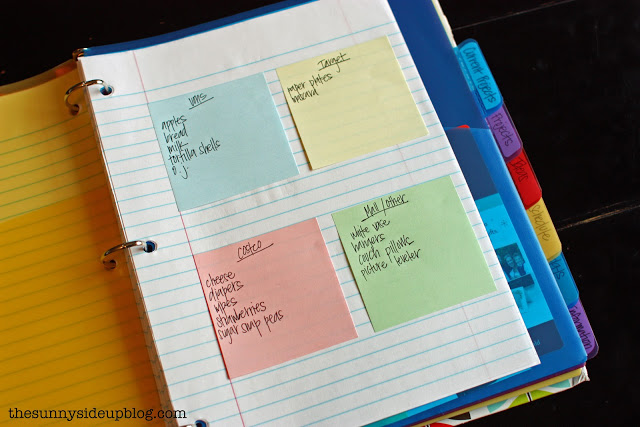 Target
paper plates
apples
bread
milk
tortilla shells
o.j.
Mall/other
white vase
hangers
couch pillows
picture leveler
Costco
cheese
diapers
wipes
strawberries
sugar snap peas
Current Projects
Projects
Schedule
Information
thesunnysideupblog.com